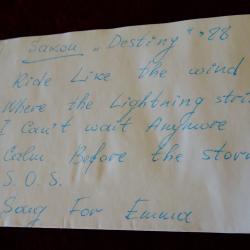 Saxon „Destiny" '88
Ride Like the wind
Where the Lightning stri
I Can't wait Anymore
Calm Before the storm
S.O.S.
Song For Emma